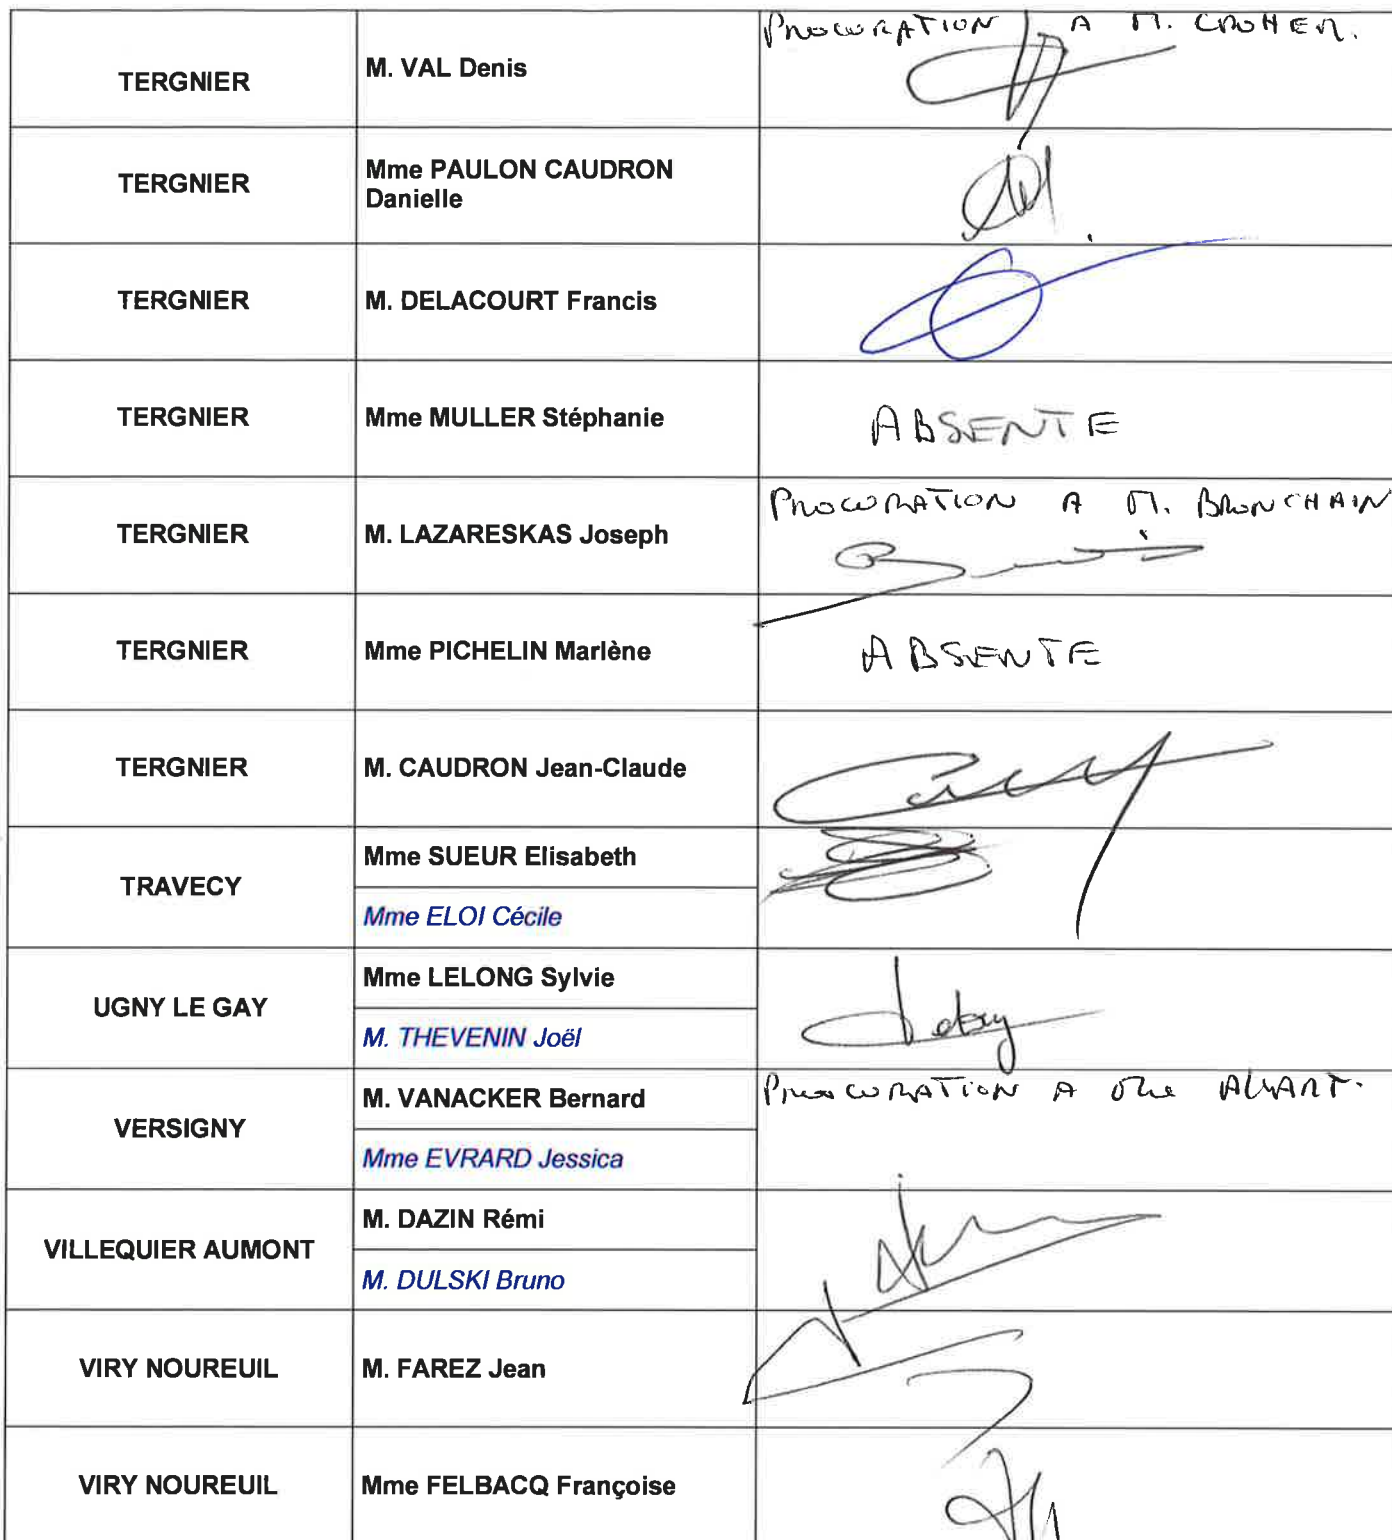 TERGNIER
M. VAL Denis
PROCURATION A M. CROHEM.
TERGNIER
Mme PAULON CAUDRON
Danielle
TERGNIER
M. DELACOURT Francis
TERGNIER
Mme MULLER Stéphanie
ABSENTE
TERGNIER
M. LAZARESKAS Joseph
PROCURATION A M. BRONCHAIN
TERGNIER
Mme PICHELIN Marlène
ABSENTE
TERGNIER
M. CAUDRON Jean-Claude
TRAVECY
Mme SUEUR Elisabeth
Mme ELOI Cécile
UGNY LE GAY
Mme LELONG Sylvie
M. THEVENIN Joël
VERSIGNY
M. VANACKER Bernard
Mme EVRARD Jessica
PROCURATION A Mme ALLART.
VILLEQUIER AUMONT
M. DAZIN Rémi
M. DULSKI Bruno
VIRY NOUREUIL
M. FAREZ Jean
VIRY NOUREUIL
Mme FELBACQ Françoise